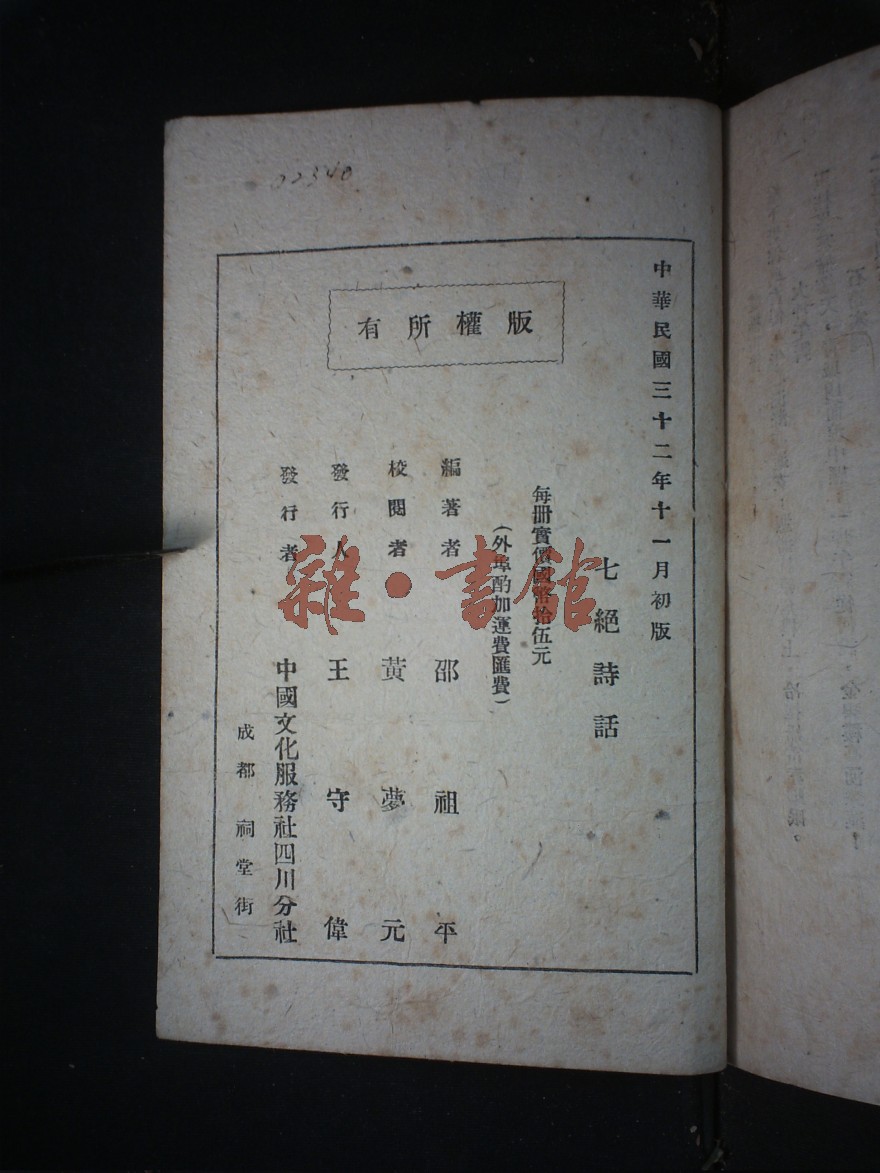 02340
中華民國三十二年十一月初版
七絕詩話
每冊實價國幣拾伍元
(外埠酌加運費匯費)
版權所有
編著者 邵祖平
校閱者 黃夢元
發行人 王守偉
發行者 中國文化服務社四川分社
成都祠堂街
雜·書館